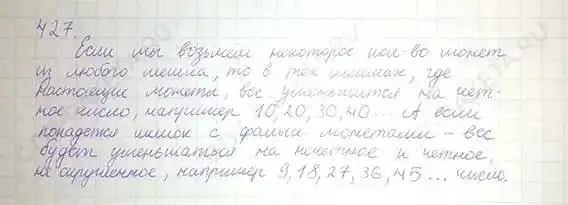 427.
Если мы возьмем некоторое кол-во монет
из любого мешка, то в тех мешках, где
настоящие монеты, вес уменьшится на чет-
ное число, например 10, 20, 30, 40... А если
попадется мешок с фальш. монетами - вес
будет уменьшаться на нечетное и четное,
не округленное, например 9, 18, 27, 36, 45... число.